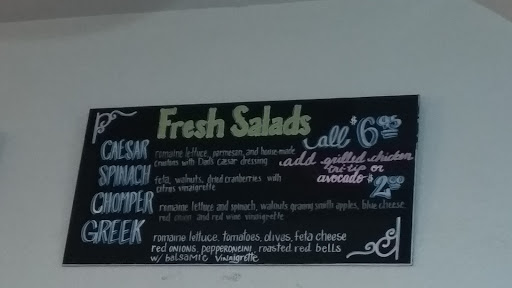 Fresh Salads
all $6.95
CAESAR romaine lettuce, parmesan, and house-made
croutons with Dad's Caesar dressing
add grilled chicken
tri-tip or
avocado $2.00
SPINACH feta, walnuts, dried cranberries with
citrus vinaigrette
CHOMPER romaine lettuce and spinach, walnuts granny smith apples, blue cheese
red onion and red wine vinaigrette
GREEK
romaine lettuce, tomatoes, olivas, feta cheese
red onions, pepperoncini, roasted red bells
w/ balsamic vinaigrette